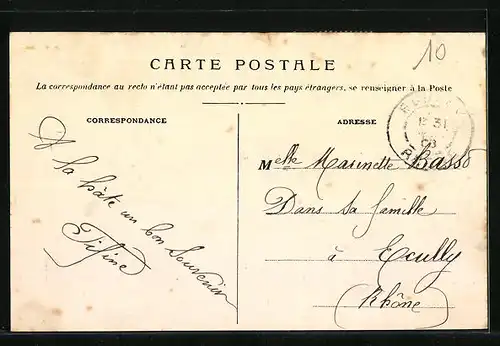 10
CARTE POSTALE
La correspondance au recto n'étant pas acceptée par tous les pays étrangers, se renseigner à la Poste
CORRESPONDANCE
A la hâte un bon Souvenir
Fifine
ADRESSE
31
08
Melle Marinette Basso
Dans sa famille
à Ecully
(Rhône)